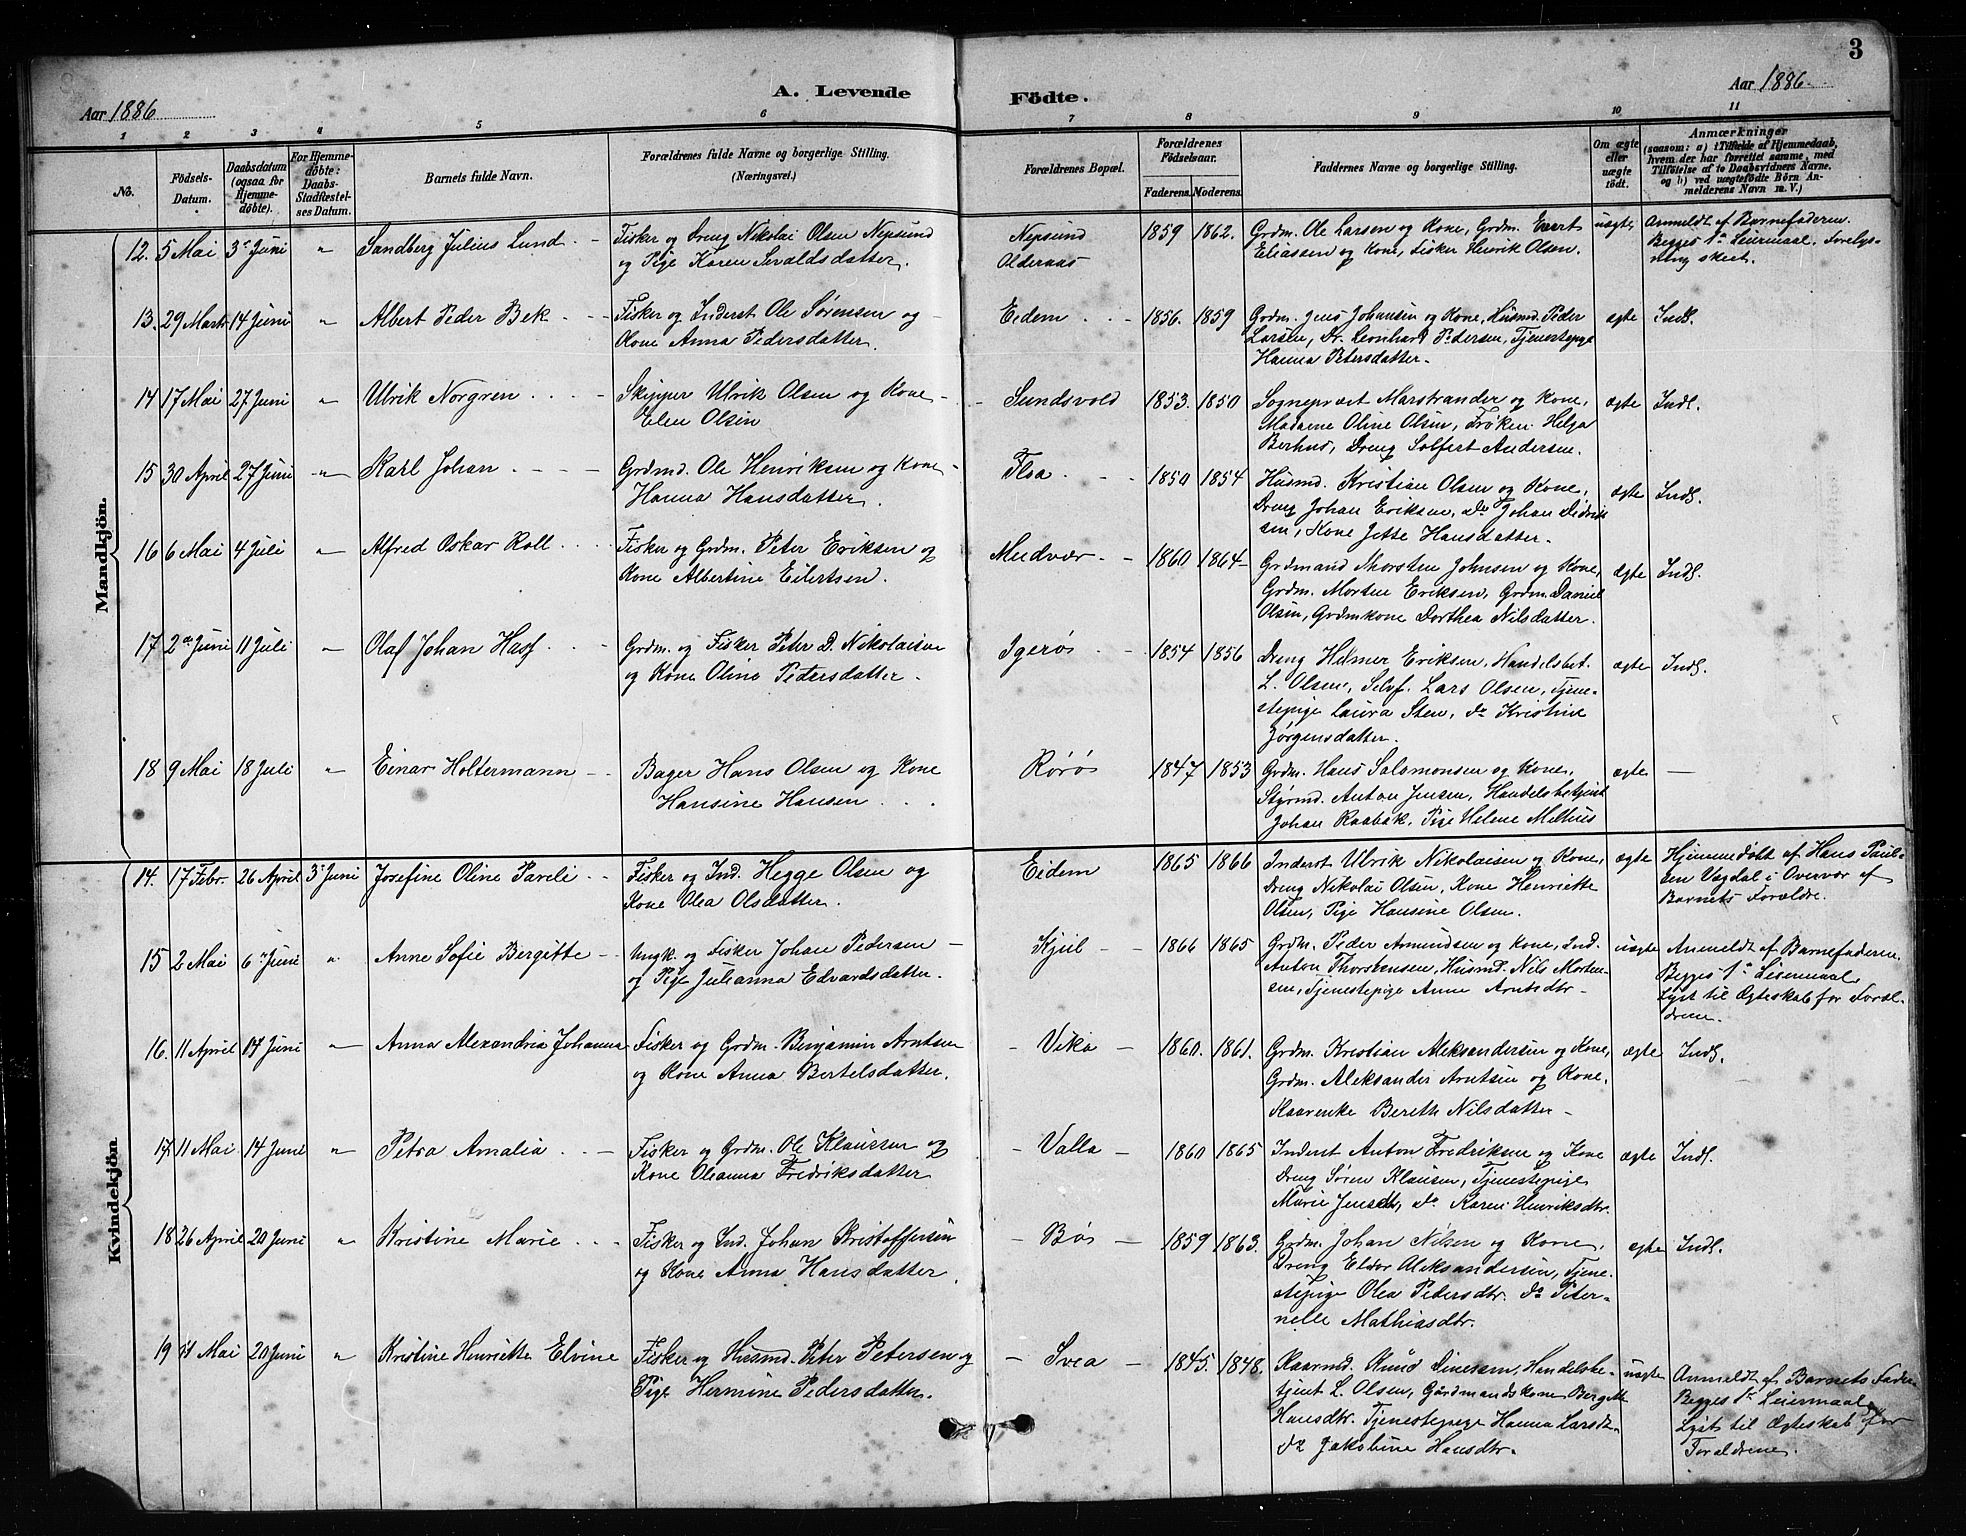 3
Aar 1886
A. Levende
Födte.
Aar 1886
1 2 3 4 5 6 7 8 9 10 11
No.
Födsels-Datum.
Daabsdatum (ogsaa for Hjemme-döbte).
For Hjemme-döbte: Daabs-Stadfæstel-ses Datum.
Barnets fulde Navn.
Forældrenes fulde Navne og borgerlige Stilling.
(Næringsvei.)
Forældrenes Bopæl.
Forældrenes Födselsaar.
Faderens. Moderens.
Faddernes Navne og borgerlige Stilling.
Om ægte eller uægte födt.
Anmærkninger
(saasom: a) i Tilfælde af Hjemmedaab, hvem der har forrettet samme, med Tilföielse af to Daabsvidners Navne, og b) ved uægtefödte Börn An-melderens Navn m. V.)
Mandkjön.
12. 5 Mai 3e Juni " Sandberg Julius Lund Fisker og Dreng Nikolai Olsen Nepsund Nepsund 1859 1862. Grdm. Ole Larsen og Kone, Grdm. Evert uægte Anmeldt af Barnefaderen.
og Pige Karen Sevaldsdatter. Olderaas Eliassen og Kone, Fisker Henrik Olsen. Begges 1ste Leiermaal. Forelys-
ning skeet.
13. 29 Marts 14 Juni " Albert Peder Bek Fisker og Inderst Ole Sørensen og Eidem 1856. 1859 Grdm. Jens Johansen og Kone, Husmd. Peder ægte Indl.
Kone Anna Pedersdatter. Larsen, Dr. Leonhard Pedersen, Tjenestepige
Hanna Petersdatter.
14 17 Mai 27 Juni " Ulrik Norgren Skipper Ulrik Olsen og Kone Sundsvold 1853. 1850 Sogneprest Marstrander og Kone, ægte Indl.
Elen Olsen Madame Oline Olsen, Frøken Helga
Berhus, Dreng Solfert Andersen.
15 30 April 27 Juni " Karl Johan Grdmd. Ole Henriksen og Kone Floa 1850 1854 Husmd. Kristian Olsen og Kone, ægte Indl.
Hanna Hansdatter. Dreng Johan Eriksen, do Johan Didrik
sen, Kone Jette Hansdatter.
16 6 Mai 4 Juli " Alfred Oskar Roll Fisker og Grdm. Peter Eriksen og Mudvær 1860 1864 Grdmand Thorsten Johnsen og Kone, ægte Indl.
Kone Albertine Eilertsen. Grdm. Morten Eriksen, Grdm. Daniel
Olsen, Grdmkone Dorthea Nilsdatter.
17 2en Juni 11 Juli " Olaf Johan Hass Grdm. og Fisker Peter D. Nikolaisen Igerøs 1854 1856 Dreng Hilmer Eriksen, Handelsbet. ægte Indl.
og Kone Oline Pedersdatter. L. Olsen, Selvf. Lars Olsen, Tjene-
stepige Laura Sten, do Kristine
Jørgensdatter.
18 9 Mai 18 Juli " Einar Holtermann Bager Hans Olsen og Kone Rørøs 1847 1853 Grdm. Hans Salomonsen og Kone, ægte —
Hansine Hansen Styrmd. Anton Jensen, Handelsbetjent
Johan Raabak, Pige Helene Melhus
Kvindekjön
14. 17 Febr. 26 April 3e Juni Josefine Oline Pareli Fisker og Ind. Hegge Olsen og Eidem 1865 1866 Inderst Ulrik Nikolaisen og Kone, ægte Hjemmedøbt af Hans Paul-
Kone Olea Olsdatter. Dreng Nikolai Olsen, Kone Henriette sen Vægdal i Overvær af
Olsen, Pige Hansine Olsen. Barnets Forældre.
15 2 Mai 6 Juni " Anne Sofie Bergitte Ungk. og Fisker Johan Pedersen Kjul 1866 1865 Grdm. Peder Amundsen og Kone, Ind. uægte Anmeldt af Barnefaderen.
og Pige Julianna Edvardsdatter. Anton Thorstensen, Husmd. Nils Morten- Begges 1ste Leiermaal.
sen, Tjenestepige Anne Arntsdtr Lyst til Ægteskab for Foræl-
drene.
16. 11 April 14 Juni " Anna Alexandria Johanna Fisker og Grdm. Benjamin Arntsen Vika 1860. 1861. Grdm. Kristian Aleksandersen og Kone, ægte Indl.
og Kone Anna Bertelsdatter. Grdm. Aleksander Arntsen og Kone,
Kaarenke Bereth Nilsdatter
17. 11 Mai 14 Juni " Petra Amalia Fisker og Grdm. Ole Klaussen og Valla 1860 1865 Inderst Anton Fredriksen og Kone ægte Indl.
Kone Oleanna Fredriksdatter Dreng Søren Klausen, Tjenestepige
Marie Jensdtr, do Karen Henriksdtr.
18 26 April 20 Juni " Kristine Marie Fisker og Ind. Johan Kristoffersen Bøs 1859 1863. Grdm. Johan Nilsen og Kone, ægte Indl.
og Kone Anna Hansdatter. Dreng Eldor Aleksandersen, Tjene-
stepige Olea Pedersdtr. do Peter-
nelle Mathiasdtr.
19 11 Mai 20 Juni " Kristine Henriette Elvine Fisker og Husmd. Peter Petersen og Svea 1845. 1848. Kaarmd. Knud Dinesen, Handelsbe- uægte Anmeldt af Barnets Fader
Pige Hermine Pedersdatter. tjent L. Olsen, Gårdmandskone Bergitte Begges 1ste Leiermaal
Hansdtr. Tjenestepige Hanna Larsdtr Lyst til Ægteskab for
do Jakobine Hansdtr. Forældrene.